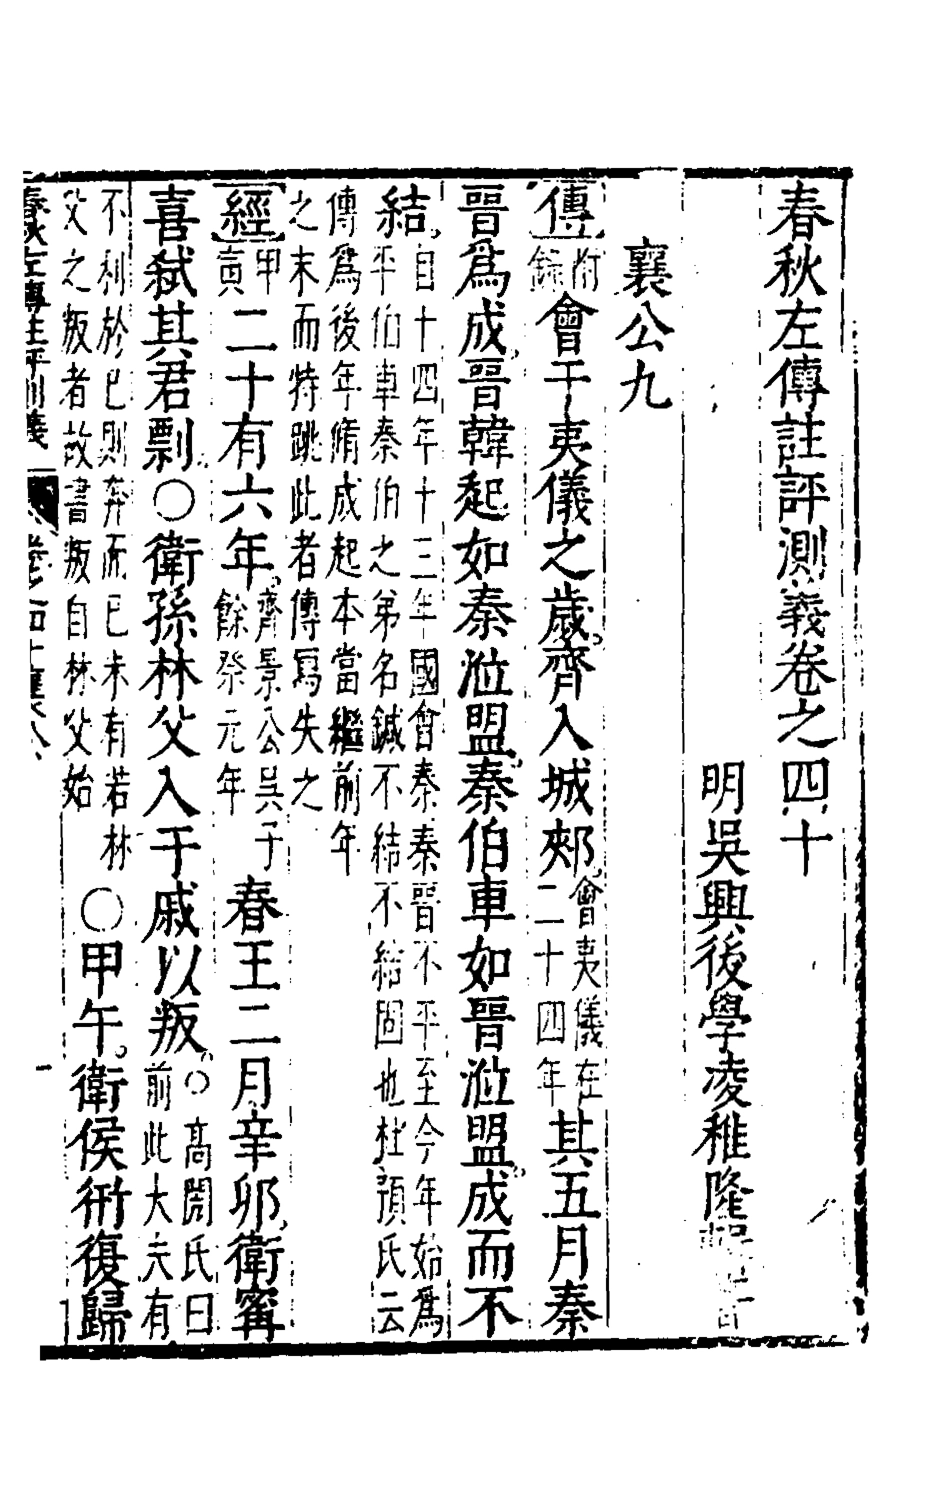 春秋左傳註評測義卷之四十
明吳興後學凌稚隆
襄公九
傳附錄會于夷儀之歲齊入城郟會夷儀在二十四年其五月秦
晉爲成晉韓起如秦涖盟秦伯車如晉涖盟成而不
結自十四年十三年國會秦秦晉不平至今年始爲平伯車秦伯之弟名鍼不結不結固也杜預氏云
傳爲後年脩成起本當繼前年之末而特跳此者傳寫失之
經甲寅二十有六年齊景公吳子餘祭元年春王二月辛卯衛甯
喜弒其君剽○衛孫林父入于戚以叛○高閌氏曰前此大夫有
不利於已則奔而已未有若林父之叛者故書叛自林父始○甲午衛侯衎復歸
春秋左傳註評測義 卷之四十